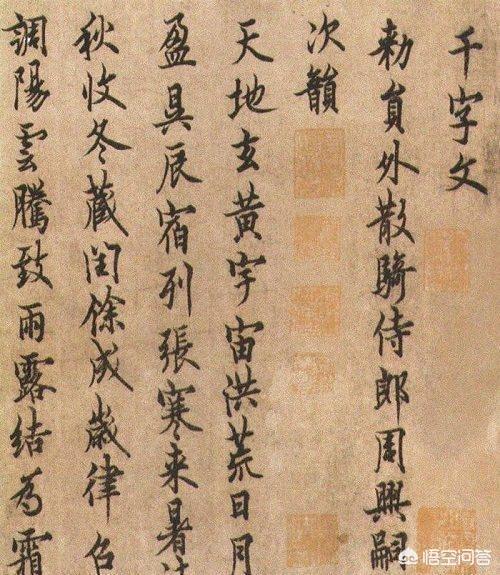 千字文
勅員外散騎侍郎周興嗣
次韻
天地玄黃宇宙洪荒日月
盈昃辰宿列張寒来暑
秋收冬藏閏餘成歲律召
調陽雲騰致雨露結為霜
悟空问答